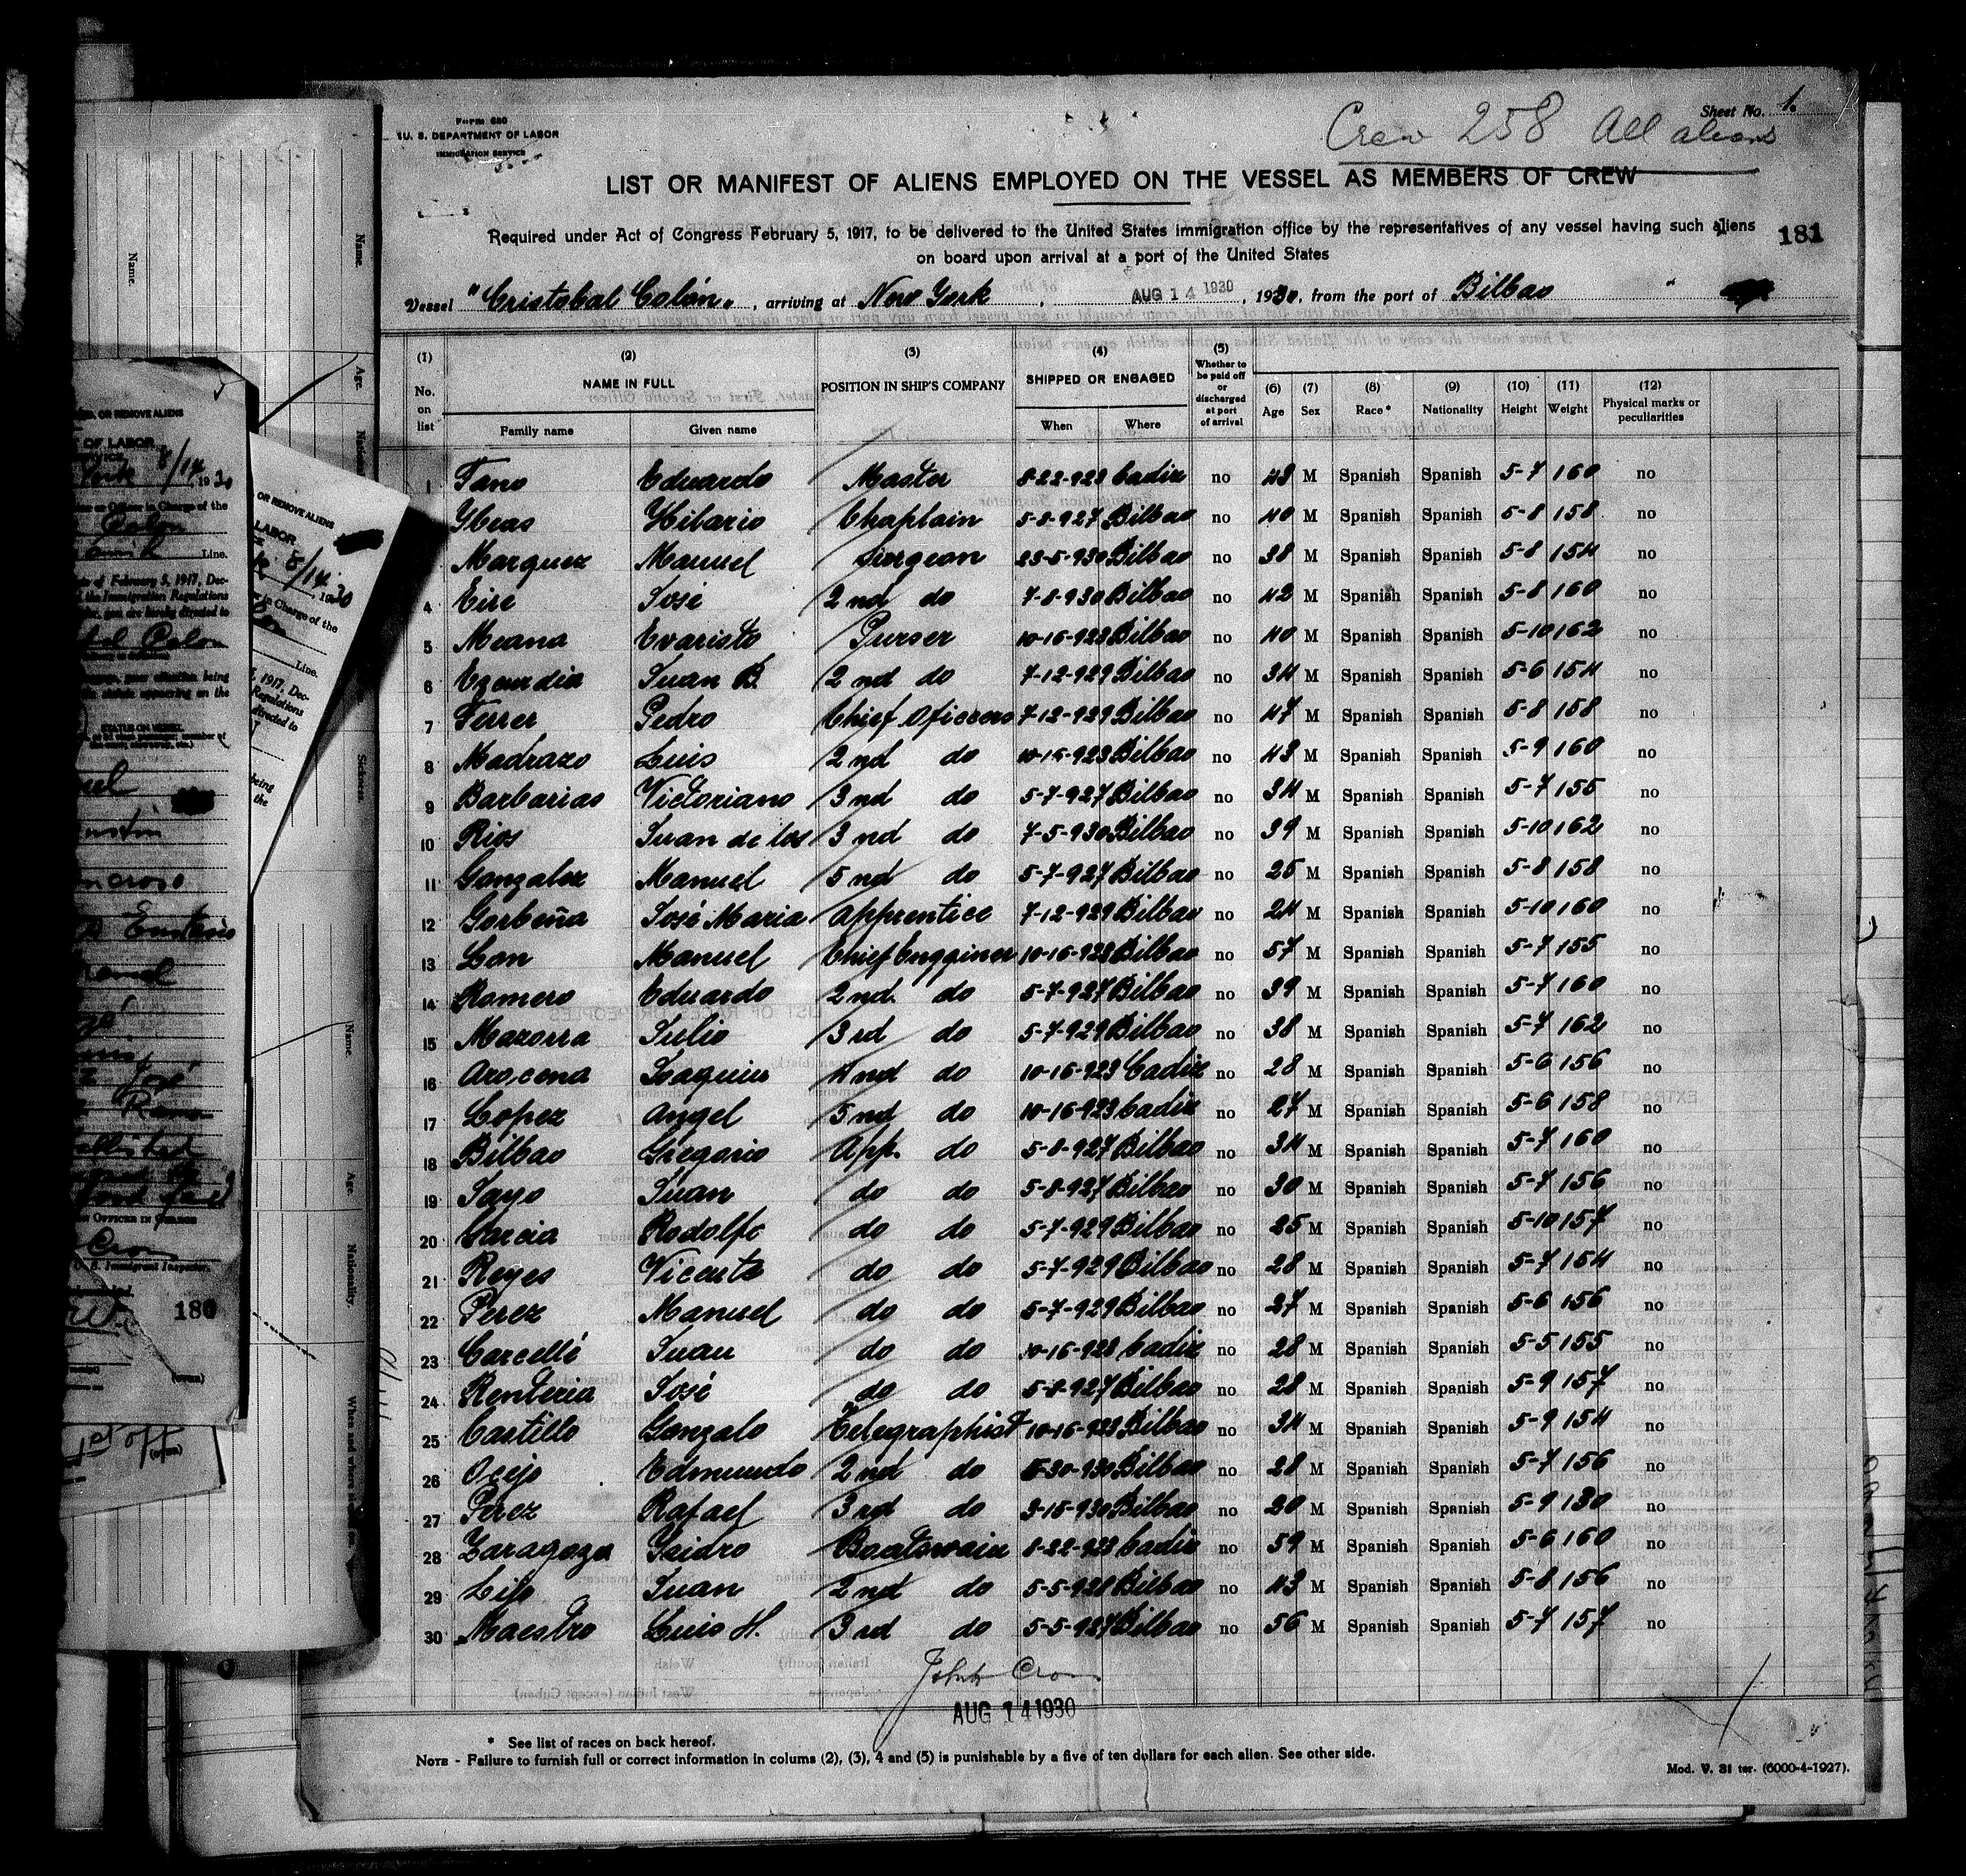 Form 680
U. S. DEPARTMENT OF LABOR
IMMIGRATION SERVICE
Sheet No. 1.
Crew 258 All aliens
LIST OR MANIFEST OF ALIENS EMPLOYED ON THE VESSEL AS MEMBERS OF CREW
Required under Act of Congress February 5, 1917, to be delivered to the United States immigration office by the representatives of any vessel having such aliens
on board upon arrival at a port of the United States
181
Vessel "Cristobal Colón", arriving at New York, AUG 14 1930, 1930, from the port of Bilbao
(1) No. on list (2) NAME IN FULL Family name Given name (3) POSITION IN SHIP'S COMPANY (4) SHIPPED OR ENGAGED When Where (5) Whether to be paid off or discharged at port of arrival (6) Age (7) Sex (8) Race* (9) Nationality (10) Height (11) Weight (12) Physical marks or peculiarities
1 Fano Eduardo Master 8-22-923 Cadiz no 43 M Spanish Spanish 5-7 160 no
Yberas Hilario Chaplain 5-8-927 Bilbao no 40 M Spanish Spanish 5-8 158 no
Marquez Manuel Surgeon 23-5-930 Bilbao no 38 M Spanish Spanish 5-8 154 no
4 Eire José 2nd do 7-8-930 Bilbao no 42 M Spanish Spanish 5-8 160 no
5 Meana Evaristo Purser 10-16-923 Bilbao no 40 M Spanish Spanish 5-10 162 no
6 Ezcurdia Juan B. 2nd do 7-12-929 Bilbao no 34 M Spanish Spanish 5-6 154 no
7 Ferrer Pedro Chief Oficcers 7-12-929 Bilbao no 47 M Spanish Spanish 5-8 158 no
8 Madrazo Luis 2nd do 10-16-923 Bilbao no 43 M Spanish Spanish 5-9 160 no
9 Barbarias Victoriano 3nd do 5-7-927 Bilbao no 34 M Spanish Spanish 5-7 155 no
10 Rios Juan de los 3nd do 7-5-930 Bilbao no 39 M Spanish Spanish 5-10 162 no
11 Gonzalez Manuel 5nd do 5-7-927 Bilbao no 25 M Spanish Spanish 5-8 158 no
12 Gorbeña José Maria Apprentice 7-12-929 Bilbao no 24 M Spanish Spanish 5-10 160 no
13 Lon Manuel Chief Engginer 10-16-923 Bilbao no 57 M Spanish Spanish 5-7 155 no
14 Romero Eduardo 2nd. do 5-7-927 Bilbao no 39 M Spanish Spanish 5-7 160 no
15 Mazorra Julio 3rd do 5-7-929 Bilbao no 38 M Spanish Spanish 5-7 162 no
16 Arocena Joaquin 4nd do 10-16-923 Cadiz no 28 M Spanish Spanish 5-6 156 no
17 Lopez Angel 5nd do 10-16-923 Cadiz no 27 M Spanish Spanish 5-6 158 no
18 Bilbao Gregorio App. do 5-8-927 Bilbao no 34 M Spanish Spanish 5-7 160 no
19 Jayo Juan do do 5-8-927 Bilbao no 30 M Spanish Spanish 5-7 156 no
20 Garcia Rodolfo do do 5-7-929 Bilbao no 25 M Spanish Spanish 5-10 157 no
21 Reyes Vicente do do 5-7-929 Bilbao no 28 M Spanish Spanish 5-7 154 no
22 Perez Manuel do do 5-7-929 Bilbao no 27 M Spanish Spanish 5-6 156 no
23 Carcellé Juan do do 10-16-928 Cadiz no 28 M Spanish Spanish 5-5 155 no
24 Renteria José do do 5-8-927 Bilbao no 28 M Spanish Spanish 5-9 157 no
25 Castillo Gonzalo Telegraphist 10-16-923 Bilbao no 34 M Spanish Spanish 5-9 154 no
26 Ocejo Edmundo 2nd do 5-30-930 Bilbao no 28 M Spanish Spanish 5-7 156 no
27 Perez Rafael 3rd do 3-15-930 Bilbao no 20 M Spanish Spanish 5-9 130 no
28 Zaragoza Ysidro Boatswain 8-22-923 Cadiz no 59 M Spanish Spanish 5-6 160 no
29 Lijo Juan 2nd do 5-5-928 Bilbao no 43 M Spanish Spanish 5-8 156 no
30 Maestro Luis H. 3rd do 5-5-927 Bilbao no 56 M Spanish Spanish 5-7 157 no
John Cro
AUG 14 1930
* See list of races on back hereof.
NOTE - Failure to furnish full or correct information in colums (2), (3), 4 and (5) is punishable by a five of ten dollars for each alien. See other side.
Mod. V. 31 ter. (6000-4-1927).
Name.
Name.
Age.
Sickness.
Name.
Age.
Nationality.
OR REMOVE ALIENS
OF LABOR
York 8/14 1930
or Officer in Charge of the
Colon
Line.
of February 5, 1917, Dec-
the Immigration Regulations
Colon
OFFICER IN CHARGE
U. S. Immigrant Inspector.
180
(OVER)
OR REMOVE ALIENS
LABOR
8/14 1930
in Charge of the
Line.
1917, Dec-
Regulations
directed to
being
the